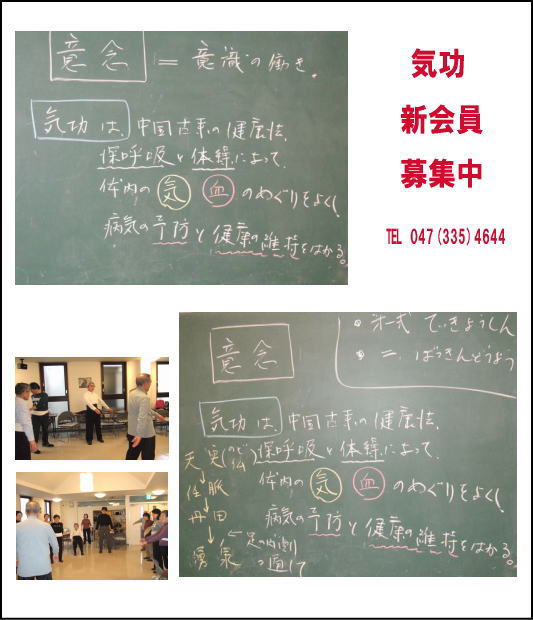 意念 = 意識の働き。
気功は、中国古来の健康法、
深呼吸と体操によって、
体内の 気 血 のめぐりをよくし、
病気の予防と健康の維持をはかる。
気功
新会員
募集中
TEL 047(335)4644
・第一式 でぃきょうしん
・二、ばっきんどうよう
意念
気功は、中国古来の健康法、
深呼吸と体操によって、
体内の 気 血 のめぐりをよくし、
病気の予防と健康の維持をはかる。
天突(のど仏)
任脈
丹田
湧泉